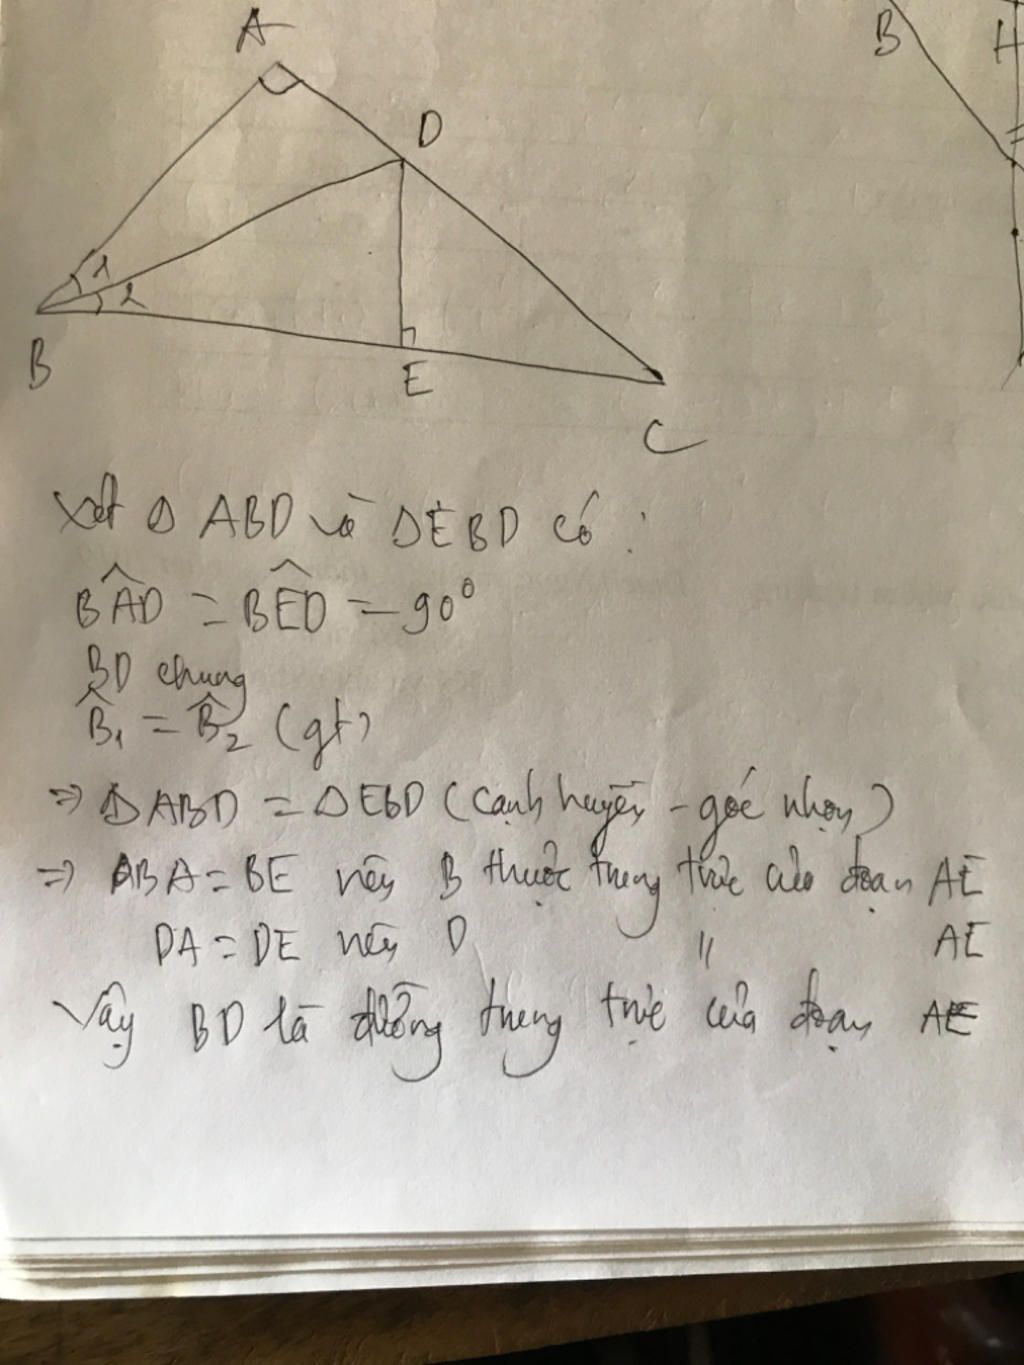 A
D
B
H
1
2
B
E
C
Xét Δ ABD và ΔEBD có :
BÂD = BÊD = 90°
BD chung
B̂₁ = B̂₂ (gt)
⇒ ΔABD = ΔEBD (cạnh huyền - góc nhọn)
⇒ BA = BE nên B thuộc trung trực của đoạn AE
DA = DE nên D " AE
Vậy BD là đường trung trực của đoạn AE